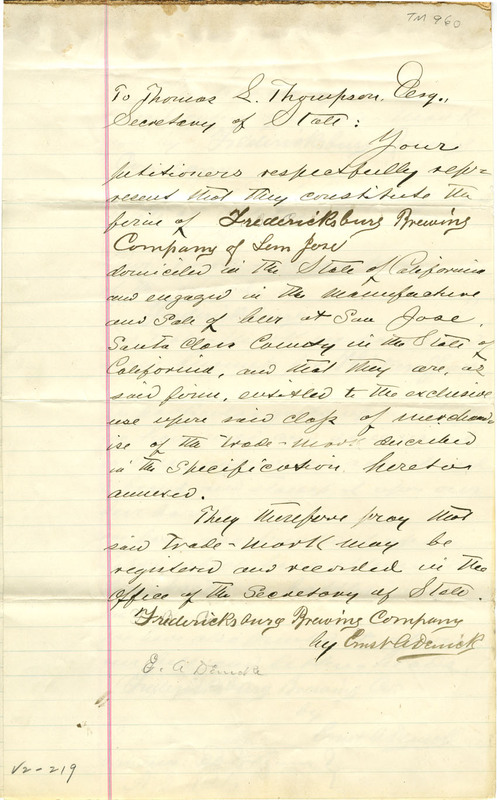 TM 960
To Thomas L. Thompson, Esq.,
Secretary of State:
Your
petitioners respectfully rep-
resent that they constitute the
firm of Fredericksburg Brewing
Company of San Jose
domiciled in the State of California
and engaged in the manufacture
and Sale of beer at San Jose,
Santa Clara County in the State of
California, and that they are, as
said firm, entitled to the exclusive
use upon said class of merchand-
ise of the trade-mark described
in the Specification hereto
annexed.
They therefore pray that
said trade-mark may be
registered and recorded in the
office of the Secretary of State.
Fredericksburg Brewing Company
by Ernst A Denick
E. A Denick
V2-219